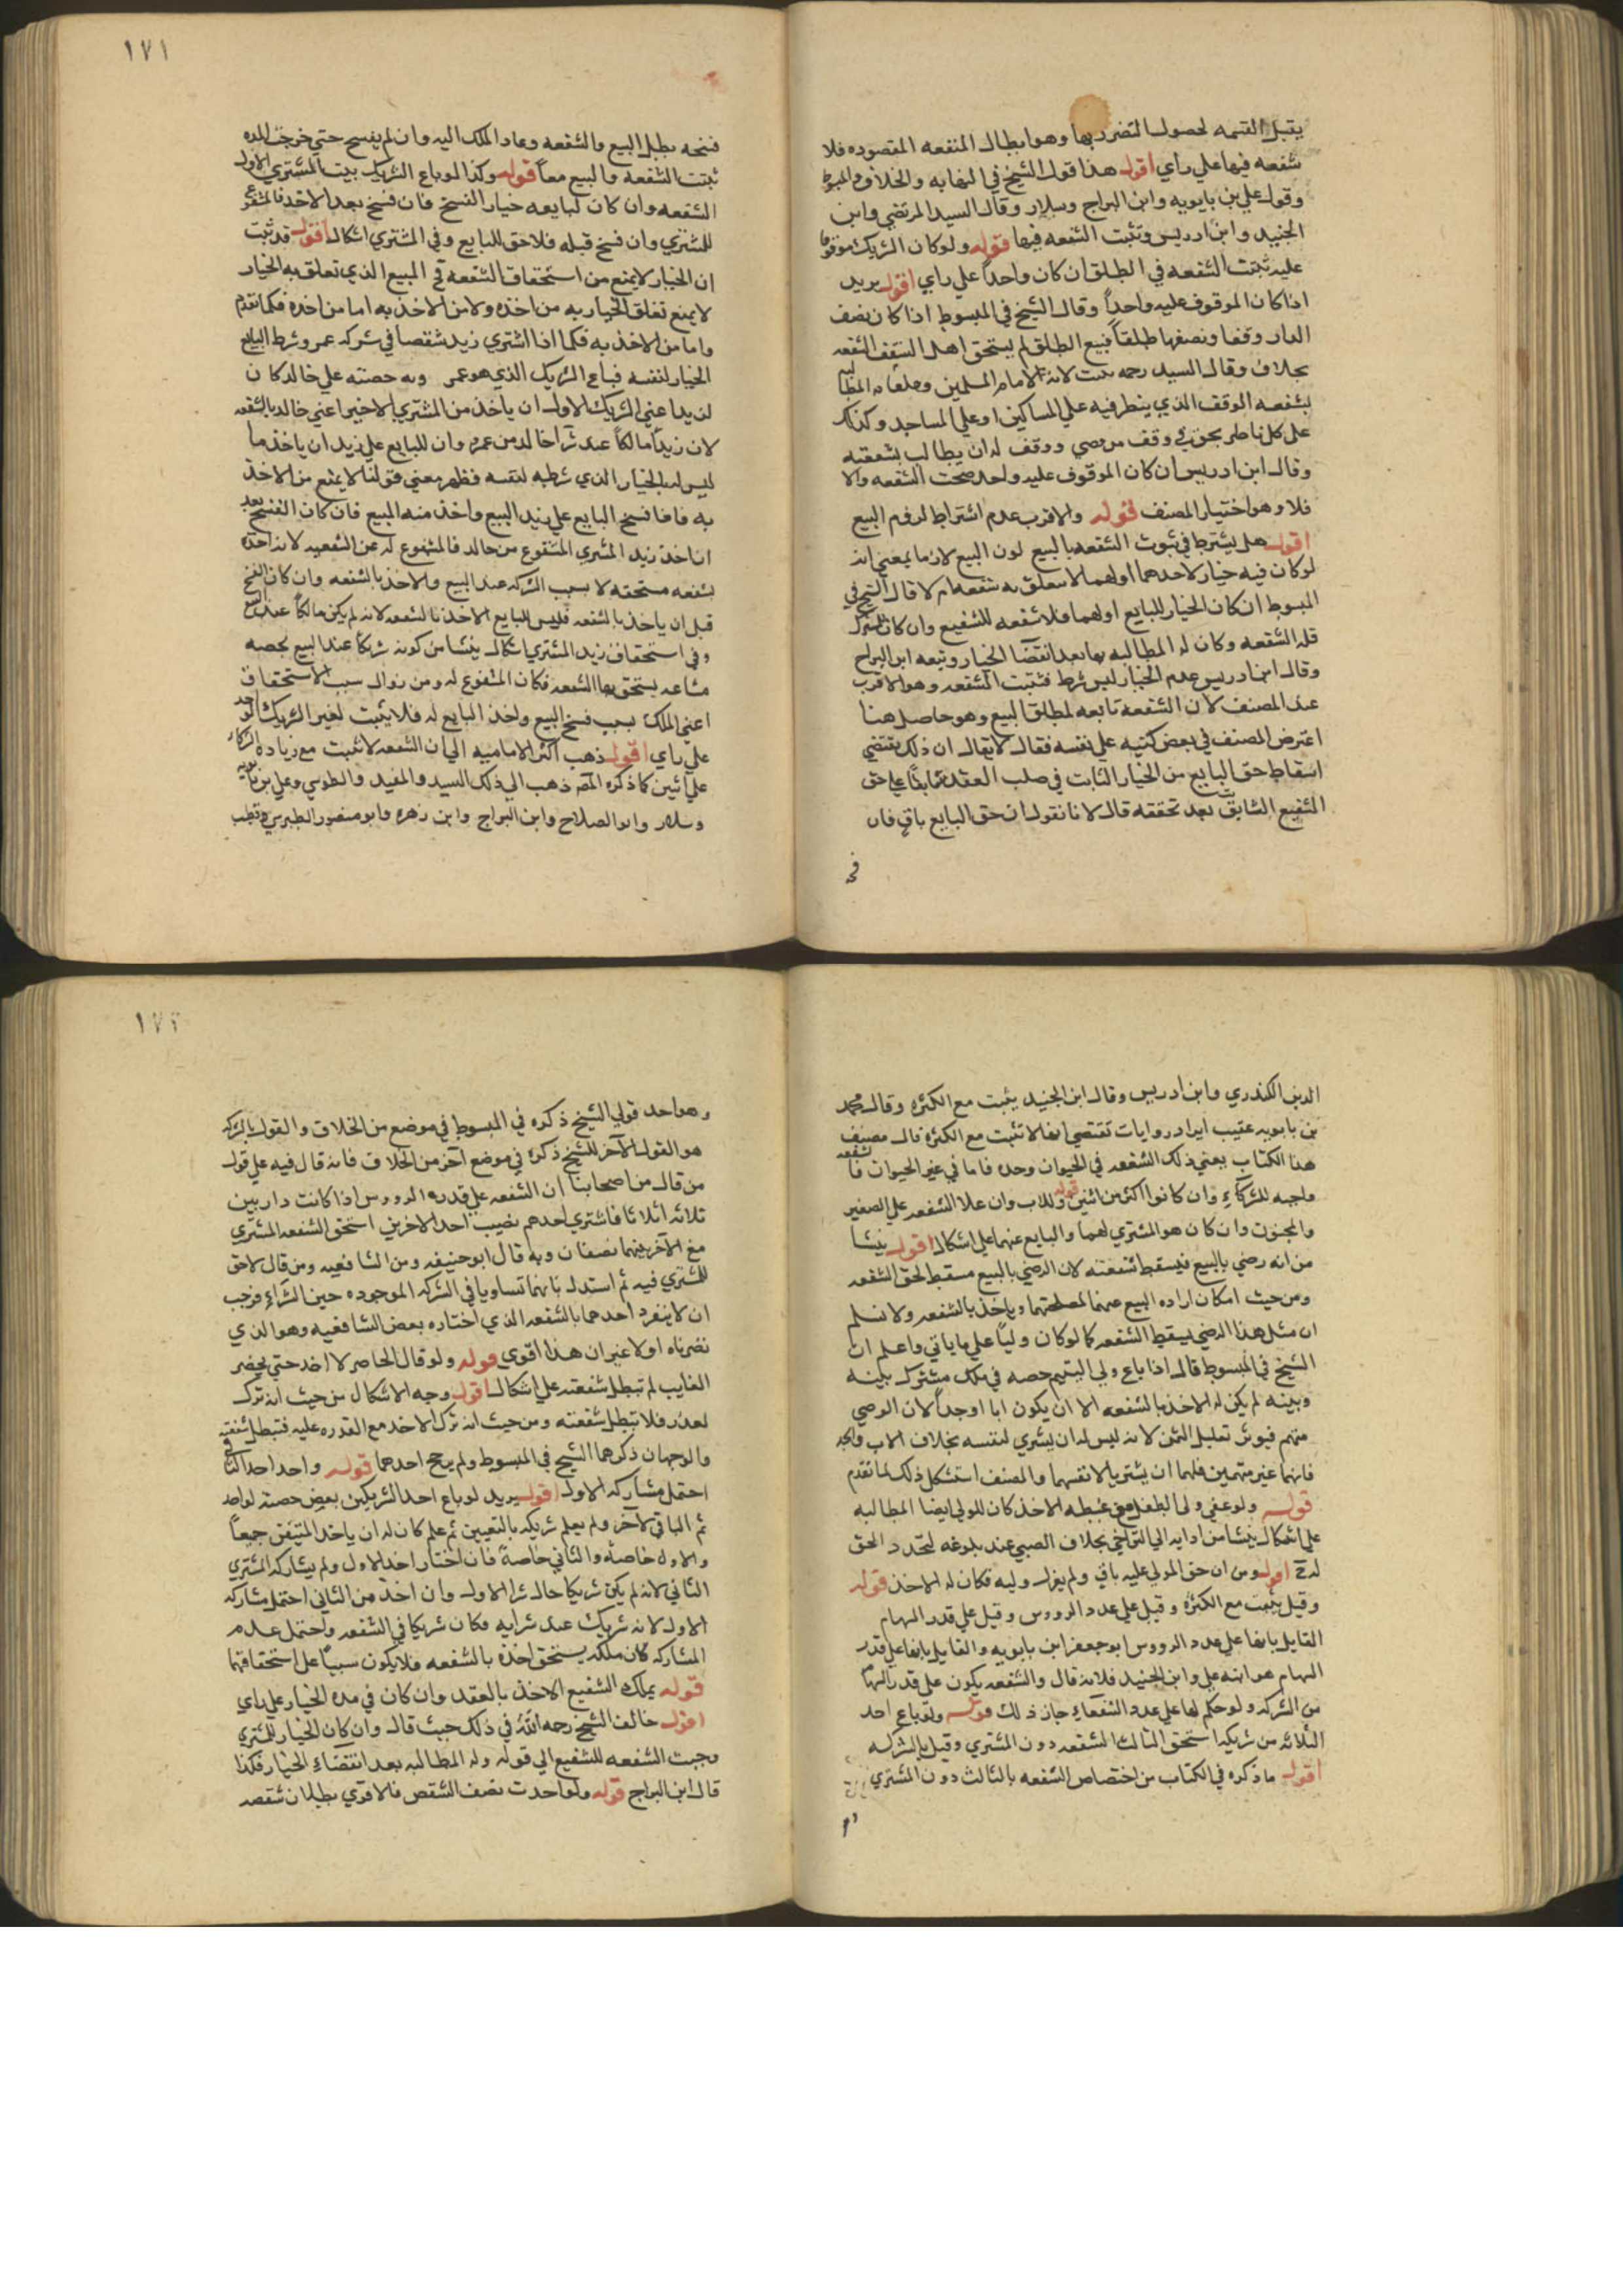 يقبل القسمه لحصول التضرر بها وهو ابطال المنفعه المقصوده فلا
شفعه فيها علي راي اقول هذا قول الشيخ في النهايه والخلاف والمبسوط
وقول علي بن بابويه وابن البراج وسلار وقال السيد المرتضي وابن
الجنيد وابن ادريس وتثبت الشفعه فيها قوله ولو كان الشريك موقوفا
عليه ثبتت الشفعه في الطلق ان كان واحداً علي راي اقول يريد
اذا كان الموقوف عليه واحداً وقال الشيخ في المبسوط اذا كان نصف
الدار وقفا ونصفها طلقاً فبيع الطلق لم يستحق اهل الوقف الشفعه
بخلاف وقال السيد رحمه لامام المسلمين وخلفاه المطالبه
بشفعه الوقف الذي ينظر فيه علي المساكين او علي المساجد وكذلك
علي كل ناظر بحق في وقف من وصي ووقف له ان يطالب بشفعته
وقال ابن ادريس ان كان الموقوف عليه واحد صحت الشفعه والا
فلا وهو اختيار المصنف قوله والاقرب عدم اشتراط لزوم البيع
اقول هل يشترط في ثبوت الشفعه بالبيع كون البيع لازما بمعني انه
لو كان فيه خيار لاحدهما او لهما لا يتعلق به شفعه ام لا قال الشيخ في
المبسوط ان كان الخيار للبايع او لهما فلا شفعه للشفيع وان كان للمشتري
فله الشفعه وكان له المطالبه بها بعد انقضا الخيار وتبعه ابن البراج
وقال ابن ادريس عدم الخيار ليس شرط فتثبت الشفعه وهو الاقرب
عند المصنف لان الشفعه تابعه لمطلق البيع وهو حاصل هنا
اعترض المصنف في بعض كتبه علي نفسه فقال لا يقال ان ذلك يقتضي
اسقاط حق البايع من الخيار الثابت في صلب العقد سابقاً علي حق
الشفيع الثابت بعد تحققه قال لانا نقول ان حق البايع باق فان
فسخه بطل البيع والشفعه وعاد الملك اليه وان لم يفسح حتي خرجت المده
ثبتت الشفعه والبيع معاً قوله وكذا لو باع الشريك بيت المشتري الاول
الشفعه وان كان لبايعه خيار الفسخ فان فسخ بعد الاخذ فالمشفوع
للمشتري وان فسخ قبله فلا حق للبايع وفي المشتري اشكال اقول قد ثبت
ان الخيار لا يمنع من استحقاق الشفعه في المبيع الذي تعلق به الخيار
لا يمنع تعلق الخيار به من اخذه ولا من الاخذ به اما من اخذه فكما تقدم
واما من الاخذ به فكما اذا اشتري زيد شقصا في شركه عمرو وشرط البايع
الخيار لنفسه فباع الشريك الذي هو عمرو حصته علي خالد كان
لزيد اعني الشريك الاول ان ياخذ من المشتري الاخير اعني خالد بالشفعه
لان زيداً مالكاً عند شرآ خالد من عمرو وان للبايع علي زيد ان ياخذ ما
ليس له بالخيار الذي شرطه لنفسه فظهر معني قولنا لا يمنع من الاخذ
به فاذا فسخ البايع علي زيد البيع واخذ منه المبيع فان كان الفسخ بعد
ان اخذ زيد المشتري المشفوع من خالد فالمشفوع له عن الشفعه لانه اخذه
بشفعه مستحقه لا بسبب الشركه عند البيع والاخذ بالشفعه وان كان الفسخ
قبل ان ياخذ بالشفعه فليس للبايع الاخذ بالشفعه لانه لم يكن مالكاً عند البيع
وفي استحقاق زيد المشتري اشكال ينشا من كونه شريكاً عند البيع بحصه
مشاعه يستحق بها الشفعه فكان المشفوع له ومن زوال سبب الاستحقاق
اعني الملك بسبب فسخ البيع واخذ البايع له فلا يثبت لغير الشريك الواحد
علي راي اقول ذهب اكثر الاماميه الي ان الشفعه لا تثبت مع زياده الشركاء
علي اثنين كما ذكره المصنف ذهب الي ذلك السيد والمفيد والطوسي وعلي بن بابويه
وسلار وابو الصلاح وابن البراج وابن زهره وابو منصور الطبرسي وقطب
الدين الكيدري وابن ادريس وقال ابن الجنيد يثبت مع الكثره وقال محمد
بن بابويه عقيب ايراد روايات تقتضي انها لا تثبت مع الكثره قال مصنف
هذا الكتاب يعني ذلك الشفعه في الحيوان وحده فاما في غير الحيوان فالشفعه
واجبه للشركآء وان كانوا اكثر من اثنين قوله وللاب وان علا الشفعه علي الصغير
والمجنون وان كان هو المشتري لهما والبايع عنهما علي اشكال اقول ينشا
من انه رضي بالبيع فيسقط شفعته لان الرضي بالبيع مسقط لحق الشفعه
ومن حيث امكان اراده البيع عنهما لمصلحتهما وياخذ بالشفعه ولا نسلم
ان مثل هذا الرضي يسقط الشفعه كما لو كان ولياً علي ما ياتي واعلم ان
الشيخ في المبسوط قال اذا باع ولي اليتيم حصه في ملك مشترك بينه
وبينه لم يكن له الاخذ بالشفعه الا ان يكون ابا او جداً لان الوصي
متهم فيوثر تقليل الثمن لانه ليس له ان يشتري لنفسه بخلاف الاب والجد
فانهما غير متهمين فلهما ان يشتريا لانفسهما والمصنف استشكل ذلك لما تقدم
قوله ولو عفي ولي الطفل مع غبطه الاخذ كان للولي ايضا المطالبه
علي اشكال ينشا من ادايه الي التراخي بخلاف الصبي عند بلوغه لتجدد الحق
له ح اقول ومن ان حق المولي عليه باق ولم يزل وليه فكان له الاخذ قوله
وقيل يثبت مع الكثره وقيل علي عدد الرووس وقيل علي قدر السهام
القايل بانها علي عدد الرووس ابو جعفر ابن بابويه والقايل بانها علي قدر
السهام هو ابنه علي وابن الجنيد فلانه قال والشفعه يكون علي قدر السهام
من الشركه ولو حكم لها علي عدد الشفعاء جاز ذلك قوله ولو باع احد
الثلاثه من شريكه استحق الثالث الشفعه دون المشتري وقيل بالشركه
اقول ما ذكره في الكتاب من اختصاص الشفعه بالثالث دون المشتري
وهو احد قولي الشيخ ذكره في المبسوط في موضع من الخلاف والقول بالشركه
هو القول الآخر للشيخ ذكره في موضع آخر من الخلاف فانه قال فيه علي قول
من قال من اصحابنا ان الشفعه علي قدر الرووس اذا كانت دار بين
ثلاثه اثلاثا فاشتري احدهم نصيب احد الاخرين استحق الشفعه المشتري
مع الآخر بينهما نصفان وبه قال ابو حنيفه ومن الشافعيه ومن قال لا حق
للمشتري فيه ثم استدل بانهما تساويا في الشركه الموجوده حين الشرآء فوجب
ان لا ينفرد احدهما بالشفعه الذي اختاره بعض الشافعيه وهو الذي
نصرناه اولا غير ان هذا اقوي قوله ولو قال الحاضر لا اخذ حتي يحضر
الغايب لم تبطل شفعته علي اشكال اقول وجه الاشكال من حيث انه ترك
لعذر فلا تبطل شفعته ومن حيث انه ترك الاخذ مع القدره عليه فتبطل شفعته
والوجهان ذكرهما الشيخ في المبسوط ولم يرجح احدهما قوله واحد احد
احتمل مشاركه الاول اقول يريد لو باع احد الشريكين بعض حصته لواحد
ثم الباقي لآخر ولم يعلم شريكه بالتعيين ثم علم كان له ان ياخذ جميعاً
والاول خاصه والثاني خاصة فان اختار اخذ الاول ولم يشاركه المشتري
الثاني لانه لم يكن شريكا حال شرا الاول وان اخذ من الثاني احتمل مشاركه
الاول لانه شريك عند شرايه فكان شريكا في الشفعه واحتمل عدم
المشاركه كان ملكه يستحق اخذه بالشفعه فلا يكون سبباً علي استحقاقها
قوله يملك الشفيع الاخذ بالعقد وان كان في مده الخيار علي راي
اقول خالف الشيخ رحمه الله في ذلك حيث قال وان كان الخيار للمشتري
وجبت الشفعه للشفيع الي قوله وله المطالبه بعد انقضاء الخيار فكذا
قال ابن البراج قوله ولو احدت نصف الشقص فالاقوي بطلان شفعته